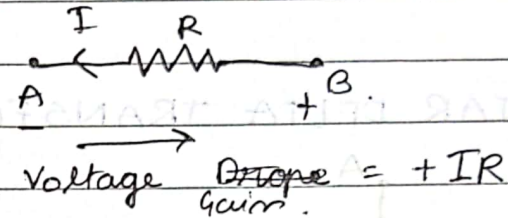 I R
A B.
- +
Voltage Drop = +IR
Gain.